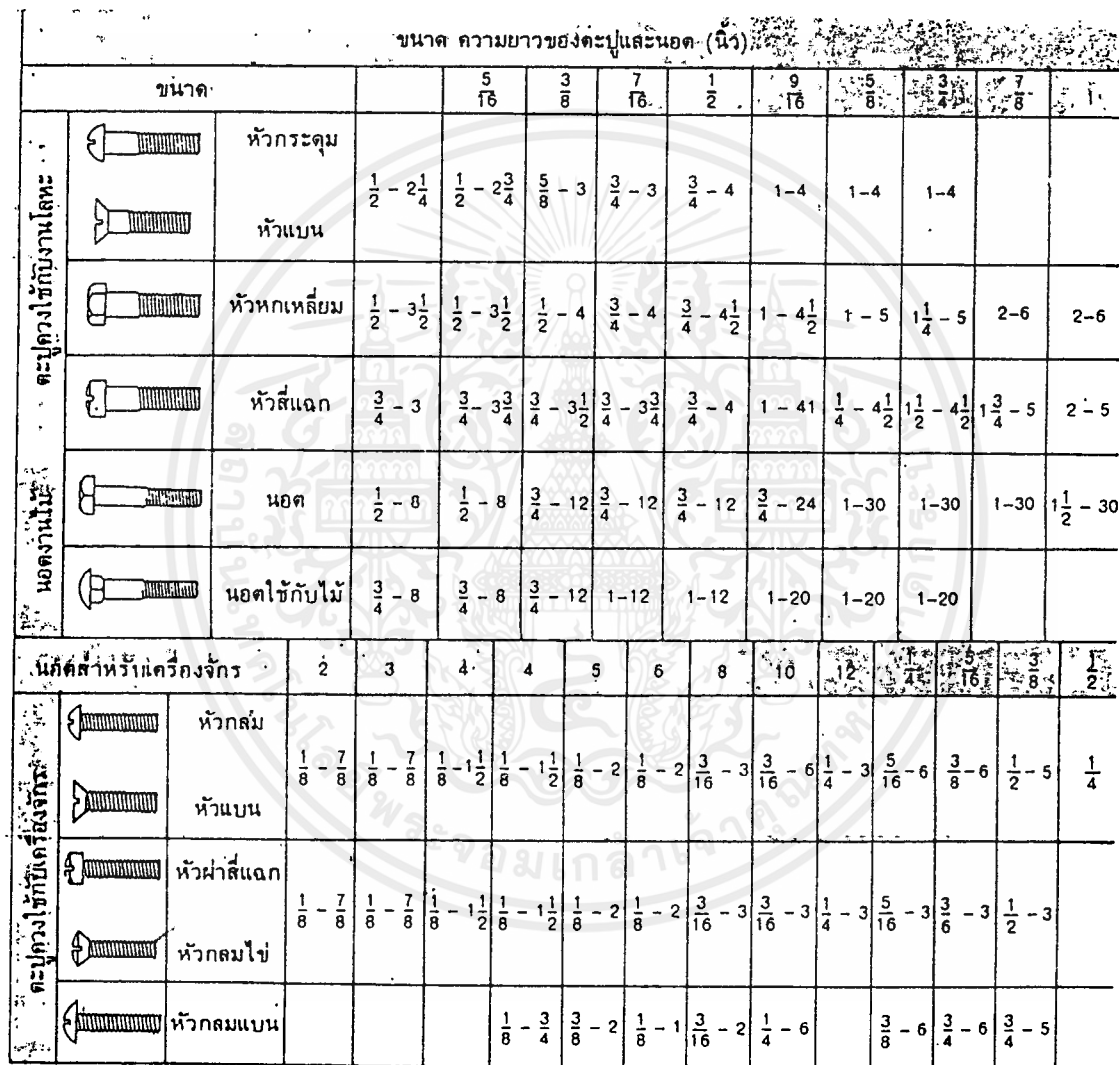 ขนาด ความยาวของตะปูและนอต (นิ้ว)
ขนาด 5/16 3/8 7/16 1/2 9/16 5/8 3/4 7/8 1
ตะปูควงใช้กับงานโลหะ
หัวกระดุม
1/2 - 2 1/4 1/2 - 2 3/4 5/8 - 3 3/4 - 3 3/4 - 4 1-4 1-4 1-4
หัวแบน
หัวหกเหลี่ยม 1/2 - 3 1/2 1/2 - 3 1/2 1/2 - 4 3/4 - 4 3/4 - 4 1/2 1 - 4 1/2 1 - 5 1 1/4 - 5 2-6 2-6
หัวสี่แฉก 3/4 - 3 3/4 - 3 3/4 3/4 - 3 1/2 3/4 - 3 3/4 3/4 - 4 1 - 41 1/4 - 4 1/2 1 1/2 - 4 1/2 1 3/4 - 5 2 - 5
นอตงานไม้
นอต 1/2 - 8 1/2 - 8 3/4 - 12 3/4 - 12 3/4 - 12 3/4 - 24 1-30 1-30 1-30 1 1/2 - 30
นอตใช้กับไม้ 3/4 - 8 3/4 - 8 3/4 - 12 1-12 1-12 1-20 1-20 1-20
นอตสำหรับเครื่องจักร 2 3 4 4 5 6 8 10 12 1/4 5/16 3/8 1/2
ตะปูควงใช้กับเครื่องจักร
หัวกลม
1/8 - 7/8 1/8 - 7/8 1/8 - 1 1/2 1/8 - 1 1/2 1/8 - 2 1/8 - 2 3/16 - 3 3/16 - 6 1/4 - 3 5/16 - 6 3/8 - 6 1/2 - 5 1/4
หัวแบน
หัวผ่าสี่แฉก
1/8 - 7/8 1/8 - 7/8 1/8 - 1 1/2 1/8 - 1 1/2 1/8 - 2 1/8 - 2 3/16 - 3 3/16 - 3 1/4 - 3 5/16 - 3 3/6 - 3 1/2 - 3
หัวกลมไข่
หัวกลมแบน 1/8 - 3/4 3/8 - 2 1/8 - 1 3/16 - 2 1/4 - 6 3/8 - 6 3/4 - 6 3/4 - 5